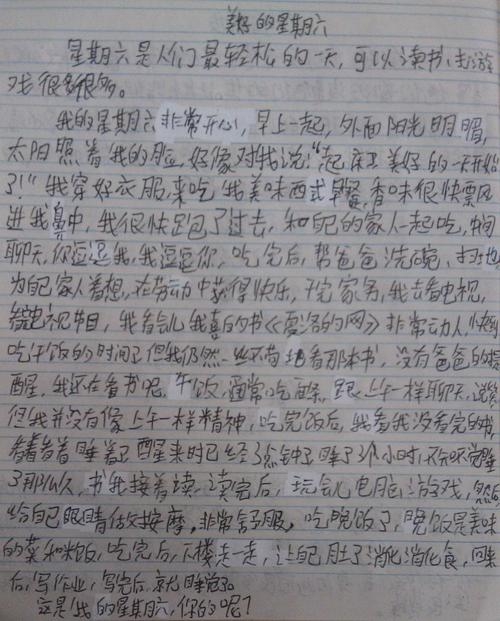 美好的星期六
星期六是人们最轻松的一天,可以读书、去游
戏很多很多。
我的星期六非常开心,早上一起,外面阳光明媚,
太阳照着我的脸,好像对我说:“起床!美好的一天开始
了!”我穿好衣服,来吃我美味西式早餐,香味很快飘
进我鼻中,我很快跑了过去,和自己的家人一起吃,中间
聊天,你逗逗我,我逗逗你,吃完后,帮爸爸洗碗、扫地
为自己家人着想,在劳动中获得快乐,干完家务,我去看电视,
电视节目,我看会儿我喜的书《夏洛的网》非常动人,快到
吃午饭的时间了但我仍然一丝不苟地看那本书,没有爸爸的提
醒,我还在看书呢。午饭,通常吃面条,跟上午一样聊天、说笑
但我并没有像上午一样精神,吃完饭后,我看我没看完的书
看着看着睡着了醒来时已经3点钟了睡了3个小时,不知不觉睡
了那么久,书我接着读,读完后,玩会儿电脑游戏,然后
给自己眼睛做按摩,非常舒服,吃晚饭了,晚饭是美味
的菜和米饭,吃完后,下楼走一走,让自己肚子消化消化食,回来
后,写作业,写完后,就睡觉了。
这是我的星期六,你的呢?